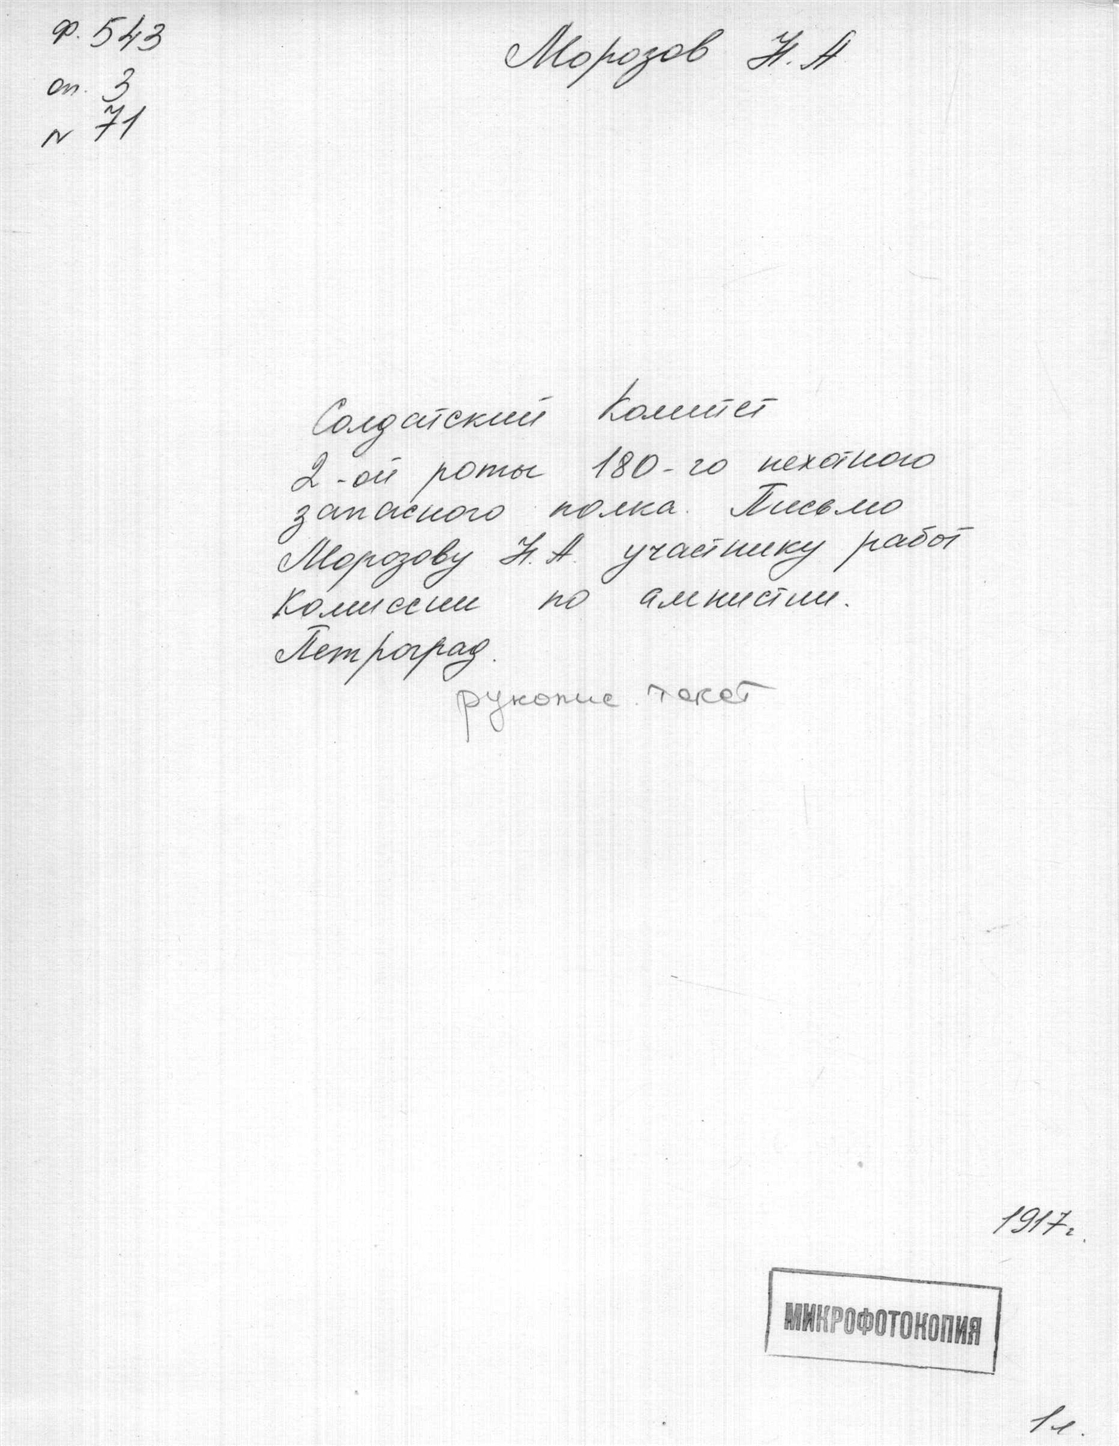 Ф. 543
оп. 3
N 71
Морозов Н. А
Солдатский Комитет
2-ой роты 180-го пехотного
запасного полка. Письмо
Морозову Н. А. участнику работ
Комиссии по амнистии.
Петроград.
рукопис. текст
1917г.
МИКРОФОТОКОПИЯ
1л.